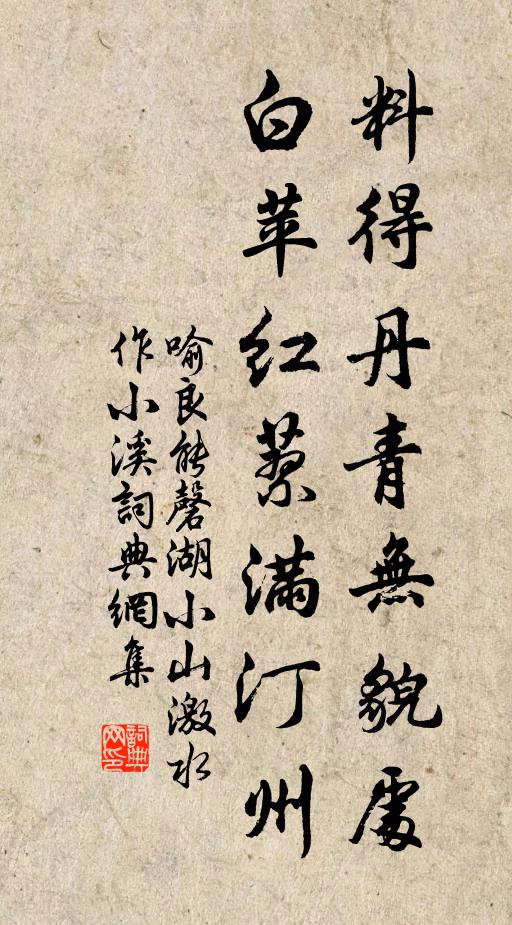 料得丹青無貌處
白苹紅蓼滿汀州
喻良能磬湖小山激水
作小溪詞典網集
詞典网印